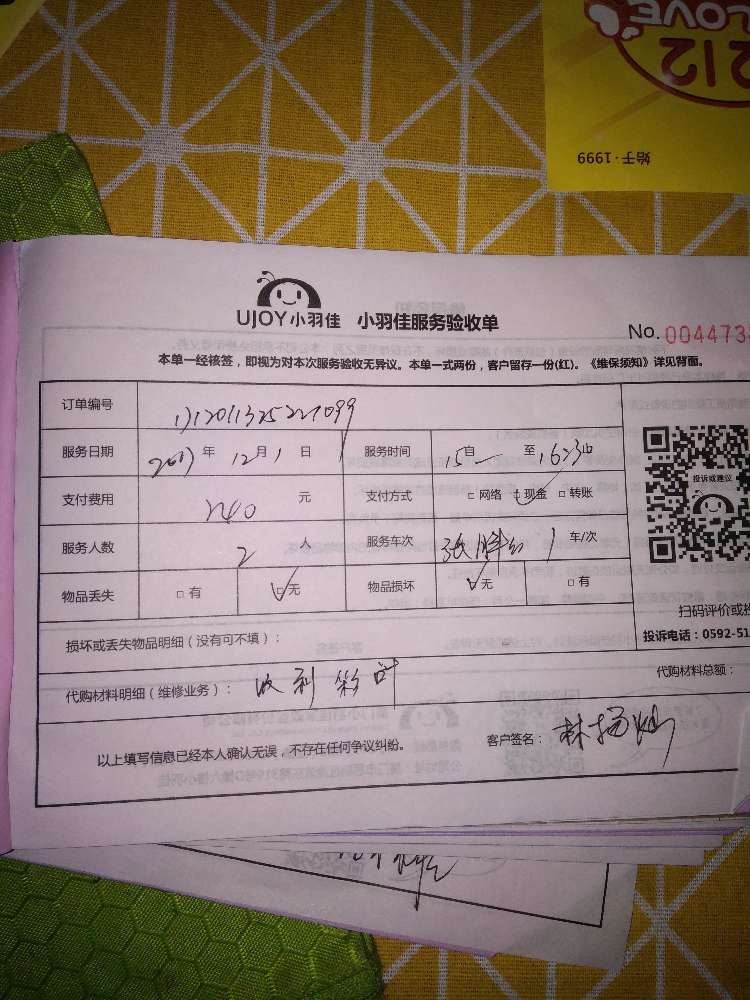 LOVE
212
始于·1999
UJOY小羽佳 小羽佳服务验收单
No. 004473
本单一经核签，即视为对本次服务验收无异议。本单一式两份，客户留存一份(红)。《维保须知》详见背面。
订单编号
服务日期 2017年 12月1日 服务时间 15自 至 16:30
支付费用 240 元 支付方式 □ 网络 □ 现金 □ 转账
投诉或建议
服务人数 2 人 服务车次 1 车/次
物品丢失 □ 有 □ 无 物品损坏 □ 无 □ 有
扫码评价或投
损坏或丢失物品明细（没有可不填）：
投诉电话：0592-51
代购材料明细（维修业务）：
代购材料总额：
以上填写信息已经本人确认无误，不存在任何争议纠纷。 客户签名：林扬灿